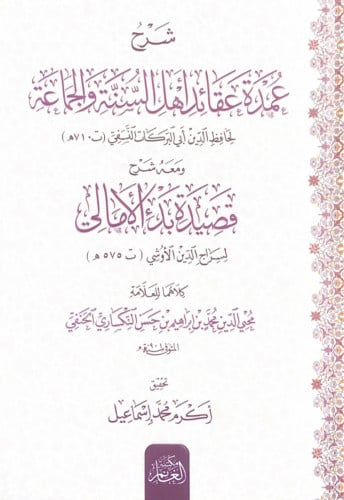 شرح
عمدة عقائد أهل السنة والجماعة
لحافظ الدين أبي البركات النسفي (ت ٧١٠ هـ)
ومعه شرح
قصيدة بدء الأمالي
لسراج الدين الأوشي (ت ٥٧٥ هـ)
كلاهما للعلامة
محيي الدين محمد بن إبراهيم بن حسن النكساري الحنفي
المتوفى ٩٠١ هـ
تحقيق
زكرم محمد إسماعيل
مكتبة
الغانم